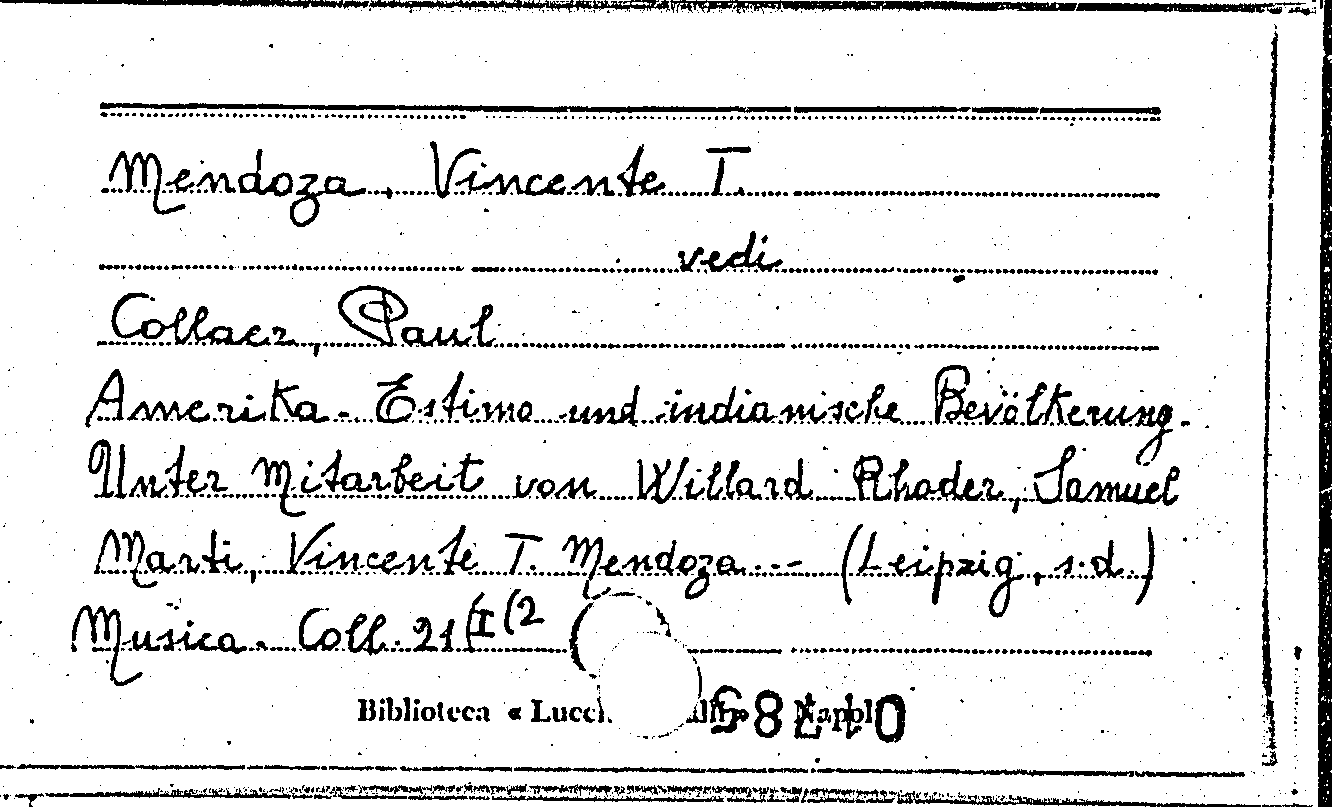 Mendoza, Vincente T.
vedi
Collaer, Paul
Amerika. Estimo und indianische Bevölkerung.
Unter Mitarbeit von Willard Rhoder, Samuel
Marti, Vincente T. Mendoza... (Leipzig, s.d.)
Musica. Coll. 21(I(2
Biblioteca «